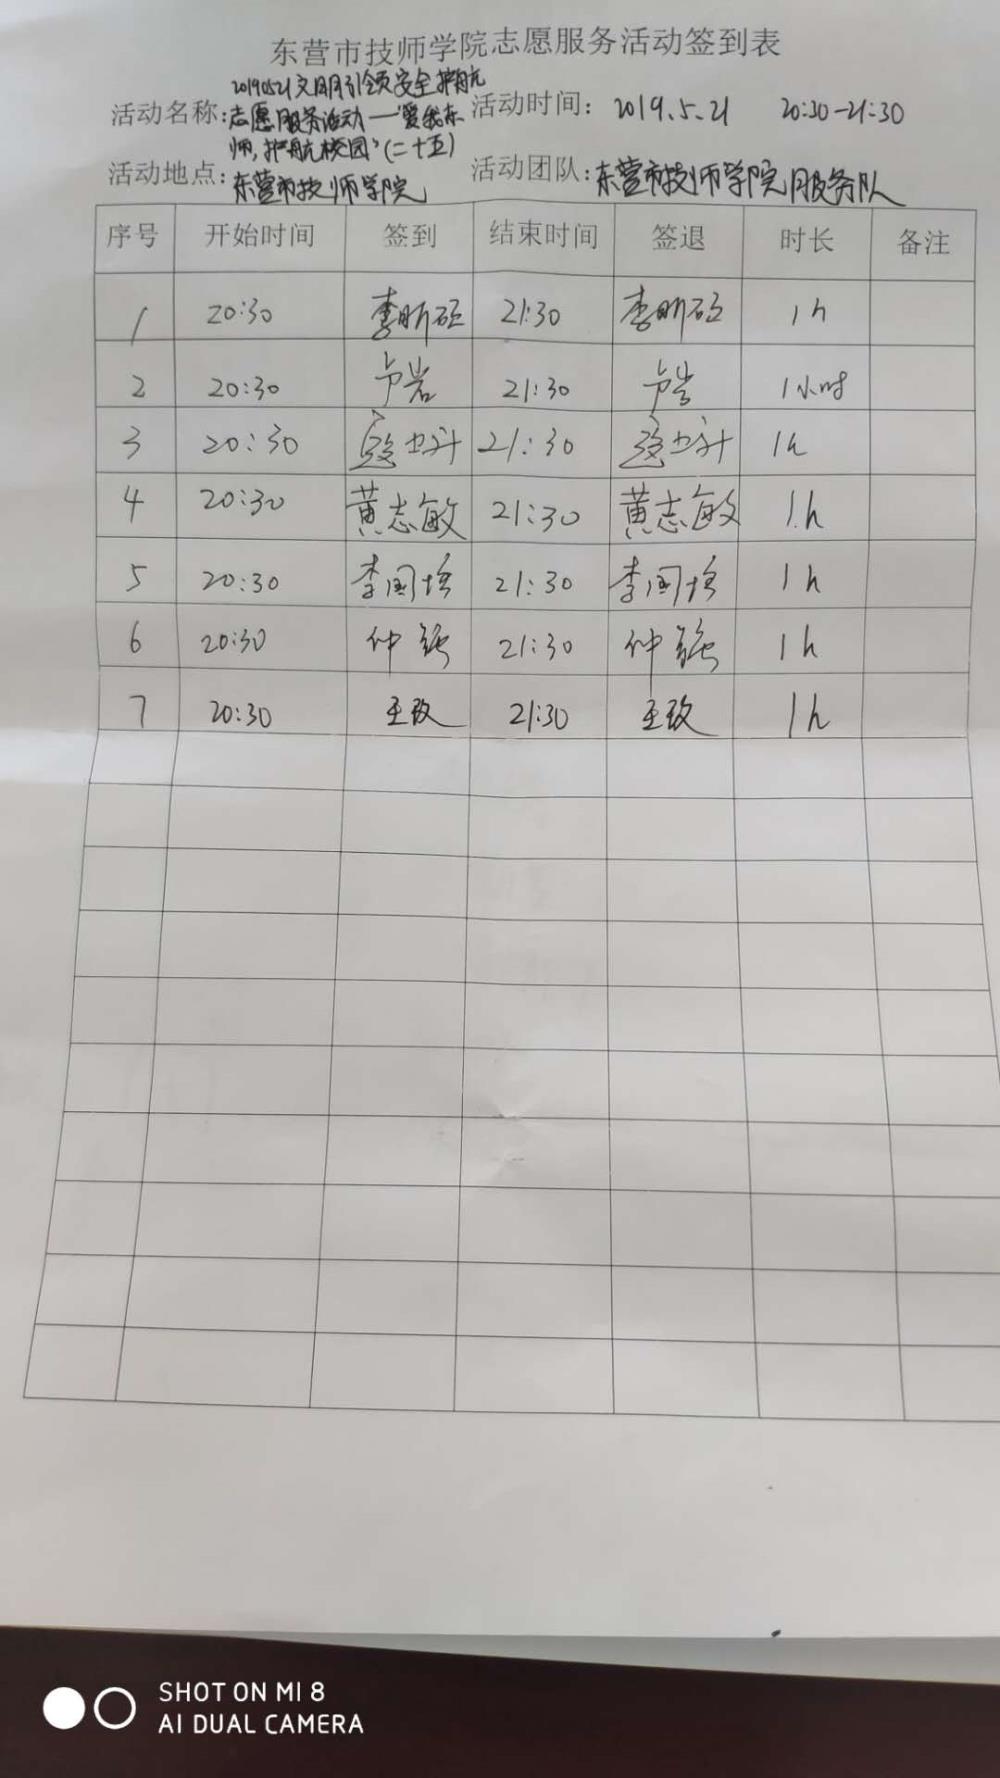 东营市技师学院志愿服务活动签到表
20190521文明引领安全护航
活动名称:志愿服务活动—"爱我东 活动时间: 2019.5.21 20:30-21:30
师,护航校园"(二十五)
活动地点:东营市技师学院 活动团队:东营市技师学院服务队
序号 开始时间 签到 结束时间 签退 时长 备注
1 20:30 李昕 21:30 李昕 1h
2 20:30 卢岩 21:30 卢岩 1小时
3 20:30 21:30 1h
4 20:30 黄志敏 21:30 黄志敏 1.h
5 20:30 李国 21:30 李国 1h
6 20:30 仲 21:30 仲 1h
7 20:30 王玫 21:30 王玫 1h
SHOT ON MI 8
AI DUAL CAMERA